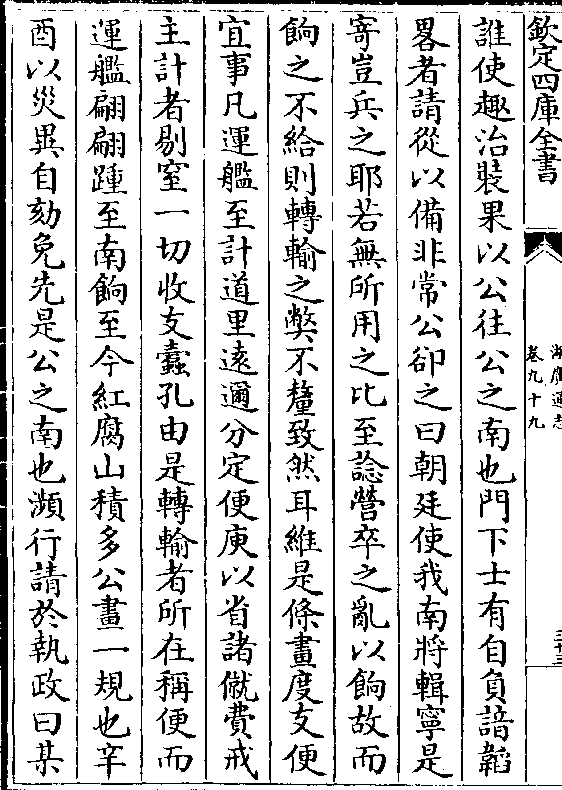 欽定四庫全書
湖廣通志
卷九十九
三十三
誰使趣治裝果以公往公之南也門下士有自負諳韜
畧者請從以備非常公卻之曰朝廷使我南將輯寧是
寄豈兵之耶若無所用之比至諗營卒之亂以餉故而
餉之不給則轉輸之弊不釐致然耳維是條畫度支便
宜事凡運艦至計道里遠邇分定便庾以省諸僦費戒
主計者剔窒一切收支蠧孔由是轉輸者所在稱便而
運艦翩翩踵至南餉至今紅腐山積多公畫一規也辛
酉以災異自劾免先是公之南也瀕行請於執政曰某